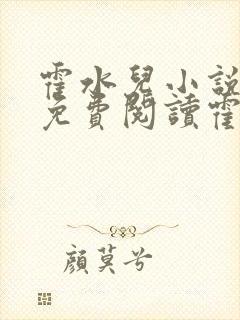 霍水兒小説
免費閱讀霍
顔莫兮